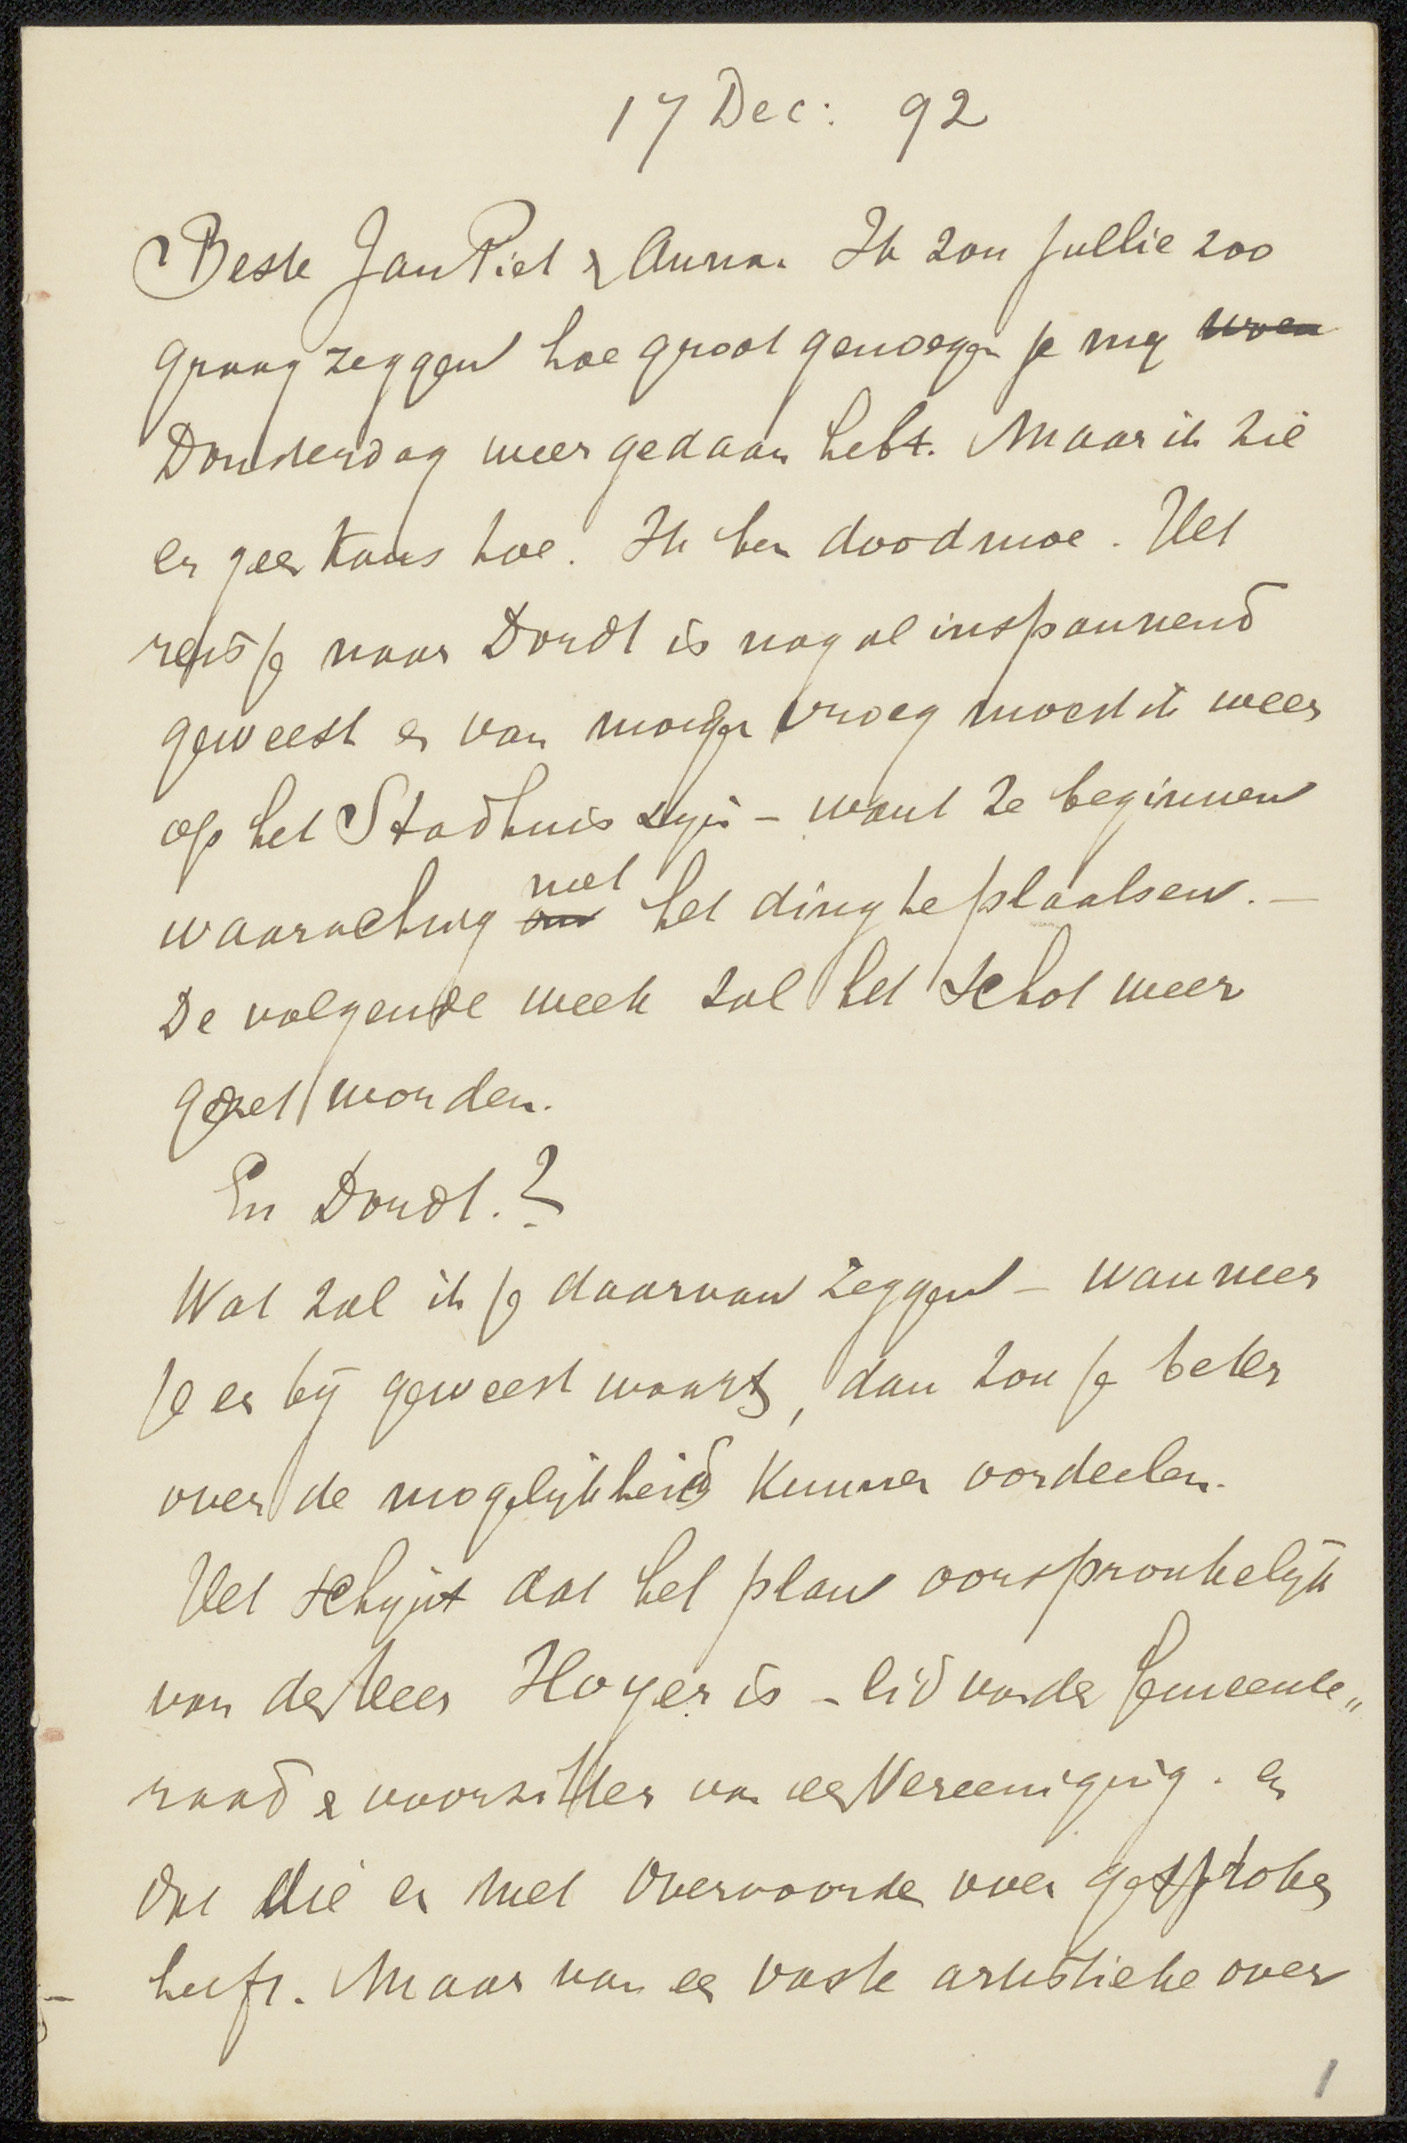 17 Dec: 92
Beste Jan Piet & Anna. Ik zou jullie zoo
graag zeggen hoe groot genoegen je mij woen
Donderdag weer gedaan hebt. Maar ik zie
er geen kans toe. Ik ben doodmoe. Het
reisje naar Dordt is nog al inspannend
geweest en van morgen vroeg moest ik weer
op het Stadhuis zijn – want ze beginnen
waarachtig met het ding te plaatsen. –
De volgende week zal het schot weer
gezet worden.
En Dordt.?
Wat zal ik je daarvan zeggen – wanneer
je er bij geweest waart, dan zou je beter
over de mogelijkheid kunnen oordeelen.
Het schijnt dat het plan oorspronkelijk
van den Heer Hoyer is – lid van de Gemeente„
raad & voorzitter van een Vereeniging. en
dat die er met Overvoorde over gesproken
heeft. Maar van een vaste artistieke over
1